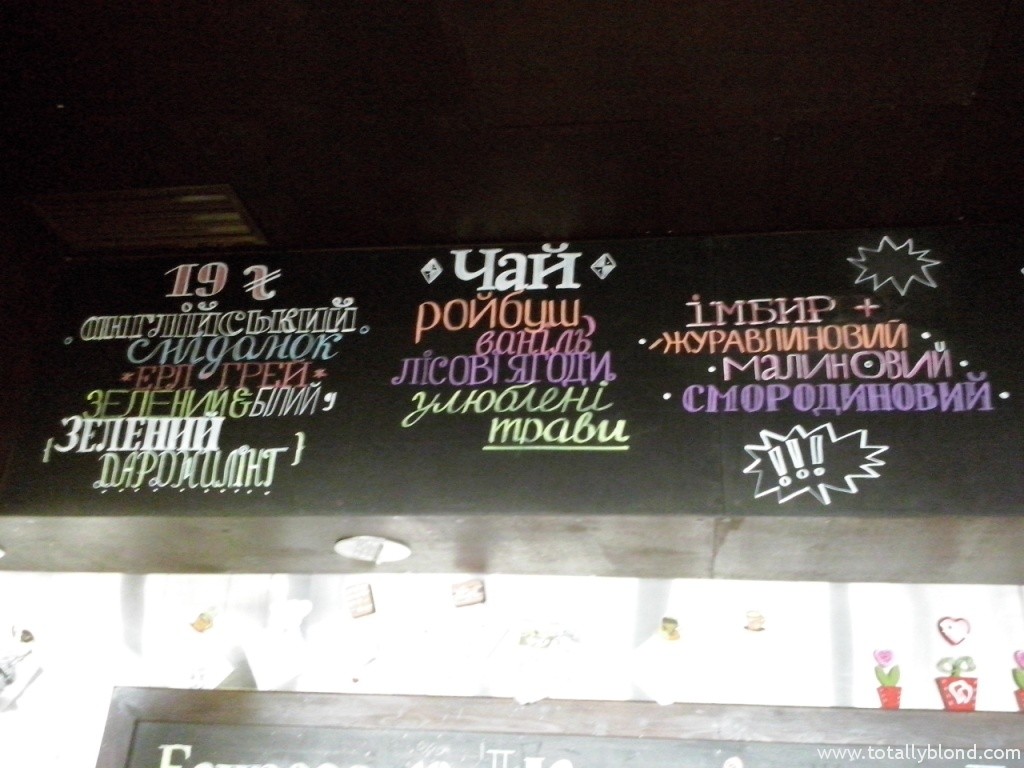 19 ₴
англійський
сніданок
*ЕРЛ ГРЕЙ*
ЗЕЛЕНИЙ & БІЛИЙ
{ЗЕЛЕНИЙ
Чай
ройбуш
ваніль
ЛІСОВІ ЯГОДИ
улюблені
трави
ІМБИР +
ЖУРАВЛИНОВИЙ
МАЛИНОВИЙ
СМОРОДИНОВИЙ
!!!
www.totallyblond.com